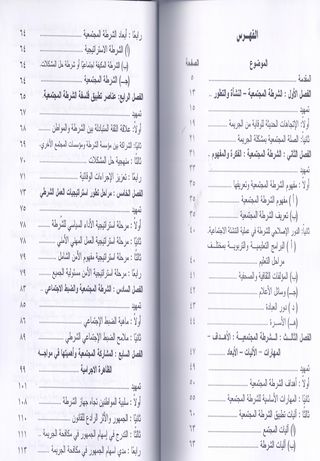 الفهرس
الموضوع الصفحة
المقدمة ٥
الفصل الأول : الشرطة المجتمعية – النشأة والتطور .. ١٣
تمهيد ١٥
أولاً: الإتجاهات الحديثة للوقاية من الجريمة ١٦
ثانياً: الصلة المجتمعية بمشكلة الجريمة ٢١
الفصل الثاني : الشرطة المجتمعية : الفكرة والمفهوم .. ٣١
تمهيد
أولاً: مفهوم الشرطة المجتمعية وتعريفها ٣٥
( أ ) مفهوم الشرطة المجتمعية ٣٥
(ب) تعريف الشرطة المجتمعية
ثانياً: الدور الإصلاحي للشرطة في عملية التنشئة الاجتماعية.
( أ ) البرامج التعليمية والتربوية بمختلف
مراحل التعليم
(ب) المؤلفات الثقافية والصحفية ٤١
(جـ) وسائل الأعلام ٤٢
( د ) دور العبادة ٤٣
(هـ) الأسرة ٤٤
الفصل الثالث : الشرطة المجتمعية : الأهداف –
المهارات – الآليات – الأبعاد ٤٧
تمهيد
أولاً: أهداف الشرطة المجتمعية ٥٠
ثانياً: المهارات الأساسية للشرطة المجتمعية ٥٥
ثالثاً: آليات تطبيق الشرطة المجتمعية ٦٠
( أ ) آليات المجتمع ٦٣
(ب) آليات الشرطة ٦٣
رابعاً: أبعاد الشرطة المجتمعية ٦٤
( أ ) الشرطة الاستراتيجية ٦٤
(ب) الشرطة المكيفة اجتماعياً أو شرطة حل المشكلات. ٦٤
(جـ) الشرطة المجتمعية ٦٤
الفصل الرابع: عناصر تطبيق فلسفة الشرطة المجتمعية. ٦٥
تمهيد ٦٧
أولاً: علاقة الثقة المتبادلة بين الشرطة والمواطن ٦٨
ثانياً: الشراكة بين مؤسسة الشرطة ومؤسسات المجتمع الأخرى. ٦٩
ثالثاً: منهجية حل المشكلات ٧٠
رابعاً: تعزيز الإجراءات الوقائية ٧١
الفصل الخامس : مراحل تطور استراتيجيات العمل الشرطي ٧٣
تمهيد ٧٥
أولاً: مرحلة استراتيجية الأداء السياسي للشرطة ٧٨
ثانياً: مرحلة استراتيجية العمل المهني الأمني ٧٨
ثالثاً: مرحلة استراتيجية مفهوم الأمن الشامل ٧٩
رابعاً: مرحلة استراتيجية الأمن مسئولية الجميع ٧٩
الفصل السادس : الشرطة المجتمعية والضبط الاجتماعي . ٨٣
تمهيد ٨٥
أولاً: ماهية الضبط الإجتماعي ٨٦
ثانياً: ملامح الضبط الإجتماعي الشرطي ٨٩
الفصل السابع : المشاركة المجتمعية وأهميتها في مواجهه
الظاهرة الاجرامية ٩٩
تمهيد ١٠١
أولاً: سلبية المواطنين تجاه جهاز الشرطة ١٠٥
ثانياً: الجمهور والأثر الرادع للقانون ١١٠
ثالثاً: التدرج في إسهام الجمهور في مكافحة الجريمة .. ١١١
رابعاً: مدى اسهام الجمهور في مكافحة الجريمة ١١٣